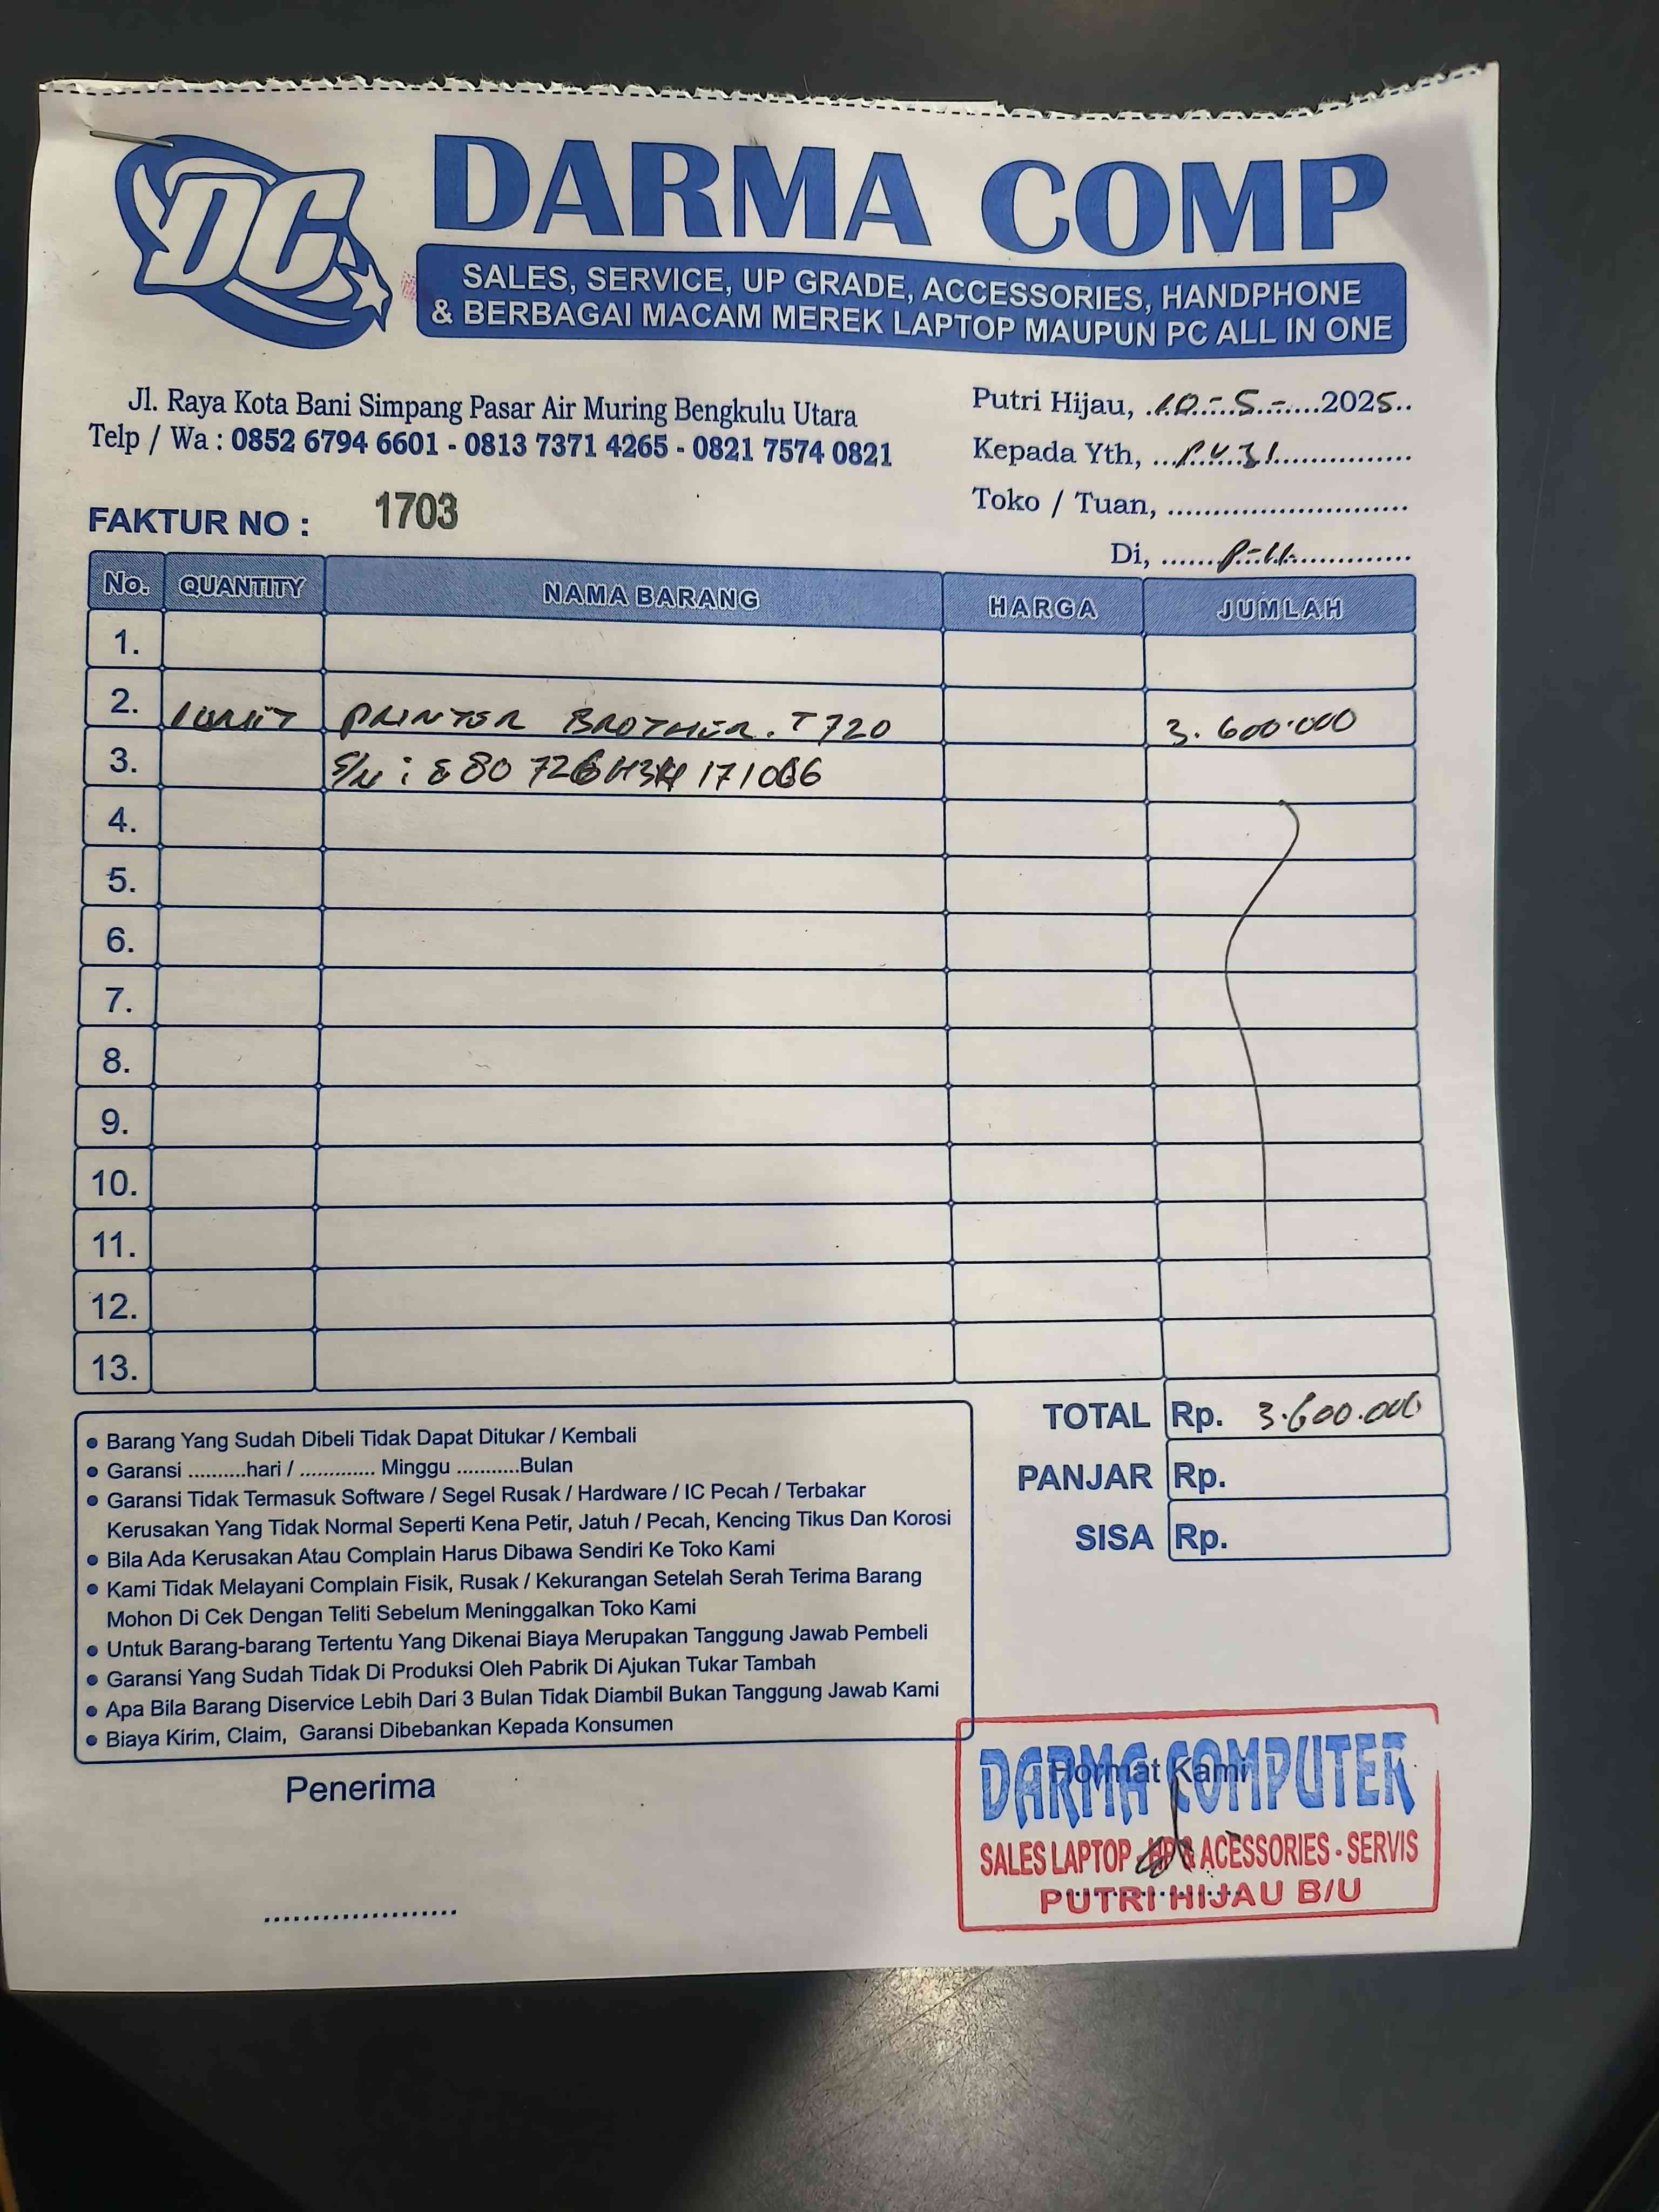 DC
DARMA COMP
SALES, SERVICE, UP GRADE, ACCESSORIES, HANDPHONE
& BERBAGAI MACAM MEREK LAPTOP MAUPUN PC ALL IN ONE
Jl. Raya Kota Bani Simpang Pasar Air Muring Bengkulu Utara
Telp / Wa : 0852 6794 6601 - 0813 7371 4265 - 0821 7574 0821
Putri Hijau, 10-5-2025
Kepada Yth,
Toko / Tuan,
Di, P-H
FAKTUR NO : 1703
No. QUANTITY NAMA BARANG HARGA JUMLAH
1.
2. 1 UNIT PRINTER BROTHER. T720 3.600.000
3. S/N :
4.
5.
6.
7.
8.
9.
10.
11.
12.
13.
TOTAL Rp. 3.600.000
PANJAR Rp.
SISA Rp.
• Barang Yang Sudah Dibeli Tidak Dapat Ditukar / Kembali
• Garansi ..........hari / ............. Minggu ...........Bulan
• Garansi Tidak Termasuk Software / Segel Rusak / Hardware / IC Pecah / Terbakar
Kerusakan Yang Tidak Normal Seperti Kena Petir, Jatuh / Pecah, Kencing Tikus Dan Korosi
• Bila Ada Kerusakan Atau Complain Harus Dibawa Sendiri Ke Toko Kami
• Kami Tidak Melayani Complain Fisik, Rusak / Kekurangan Setelah Serah Terima Barang
Mohon Di Cek Dengan Teliti Sebelum Meninggalkan Toko Kami
• Untuk Barang-barang Tertentu Yang Dikenai Biaya Merupakan Tanggung Jawab Pembeli
• Garansi Yang Sudah Tidak Di Produksi Oleh Pabrik Di Ajukan Tukar Tambah
• Apa Bila Barang Diservice Lebih Dari 3 Bulan Tidak Diambil Bukan Tanggung Jawab Kami
• Biaya Kirim, Claim, Garansi Dibebankan Kepada Konsumen
Penerima
Hormat Kami
DARMA COMPUTER
SALES LAPTOP - HP & ACESSORIES - SERVIS
PUTRI HIJAU B/U